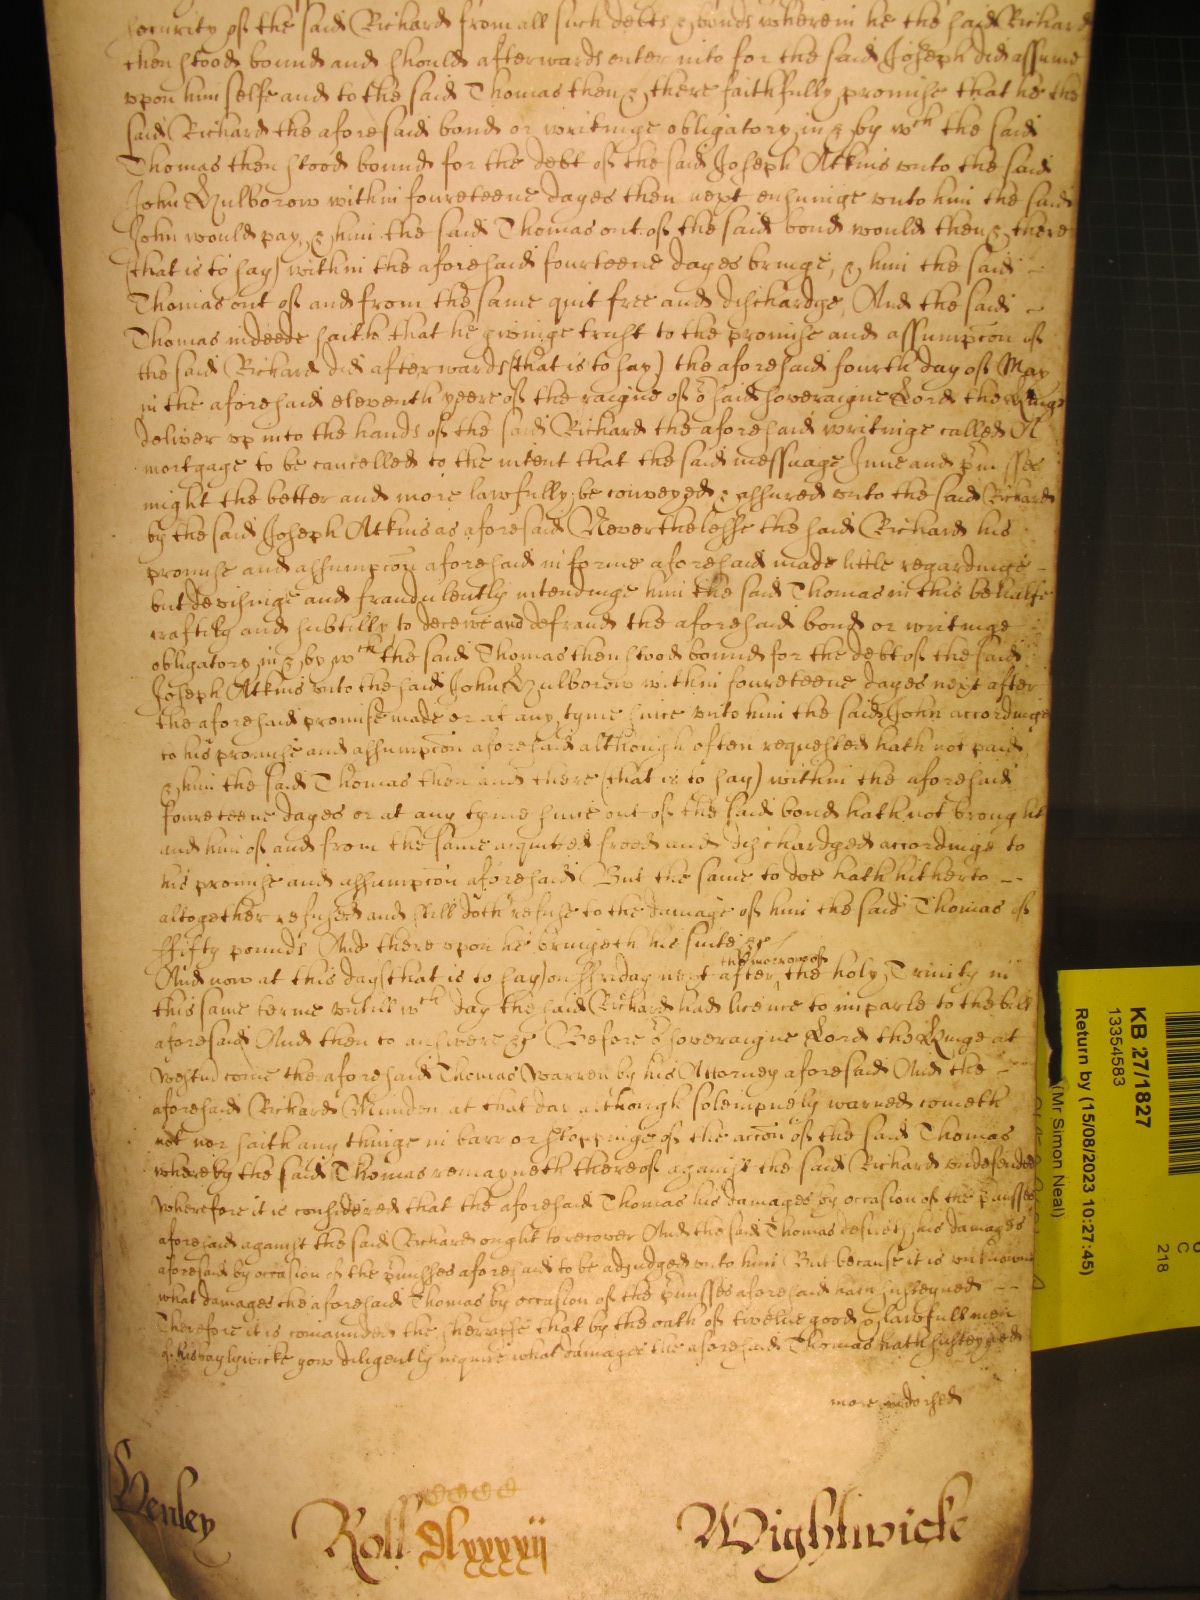 security of the said Richard from all such debts & bonds wherein he the said Richard
then stood bound and should afterwards enter into for the said Joseph did assume
upon him selfe and to the said Thomas then & there faithfully promise that he the
said Richard the aforesaid bond or writinge obligatory in & by wch the said
Thomas then stood bound for the debt of the said Joseph Atkins unto the said
John Hulborow within foureteene dayes then next ensuinge unto him the said
John would pay, & him the said Thomas out of the said bond would then & there
(that is to say) within the aforesaid fourteene dayes bringe, & him the said
Thomas out of and from the same quit free and dischardge, And the said
Thomas indeede saith that he givinge trust to the promise and assumpcon of
the said Richard did afterwards (that is to say) the aforesaid fourth day of May
in the aforesaid eleventh yeere of the raigne of or said soveraigne Lord the Kinge
deliver up into the hands of the said Richard the aforesaid writinge called A
mortgage to be cancelled to the intent that the said messuage Inne and pmisses
might the better and more lawfully be conveyed & assured unto the said Richard
by the said Joseph Atkins as aforesaid Neverthelesse the said Richard his
promise and assumpcon aforesaid in forme aforesaid made little regardinge
but devisinge and fraudulently intendinge him the said Thomas in this behalfe
craftily and subtilly to deceive and defraud the aforesaid bond or writinge
obligatory in & by wth the said Thomas then stood bound for the debt of the said
Joseph Atkins unto the said John Hulborow within foureteene dayes next after
the aforesaid promise made or at any tyme since unto him the said John accordinge
to his promise and assumpcon aforesaid although often requested hath not paid
& him the said Thomas then and there (that is to say) within the aforesaid
foureteene dayes or at any tyme since out of the said bond hath not brought
and him of and from the same acquitted freed and dischardged accordinge to
his promise and assumpcon aforesaid But the same to doe hath hitherto
altogether refused and still doth refuse to the damage of him the said Thomas of
ffifty pounds And thereupon he bringeth his suite &c
the morrow of
And now at this day (that is to say) on ffriday next after the holy Trinity in
this same terme untill wch day the said Richard had licence to imparle to the bill
aforesaid And then to answere &c Before or soveraigne Lord the Kinge at
Westm come the aforesaid Thomas Warren by his Attorney aforesaid And the
aforesaid Richard Mundon at that day although solempnely warned cometh
not nor saith any thinge in barr or stoppinge of the accon of the said Thomas
whereby the said Thomas remayneth thereof against the said Richard undefended
Wherefore it is considered that the aforesaid Thomas his damages by occasion of the pmisses
aforesaid against the said Richard ought to recover And the said Thomas desireth his damages
aforesaid by occasion of the pmisses aforesaid to be adjudged unto him But because it is unknowne
what damages the aforesaid Thomas by occasion of the pmisses aforesaid hath susteyned
Therefore it is comaunded the sherriffe that by the oath of twelve good & lawfull men
of his baylywicke you diligently inquire what damages the aforesaid Thomas hath susteyned
more indorsed
Henley
Roll Dlxxxxii
Wightwick
KB 27/1827
13354583
Return by (15/08/2023 10:27:45)
(Mr Simon Neal)
C
218